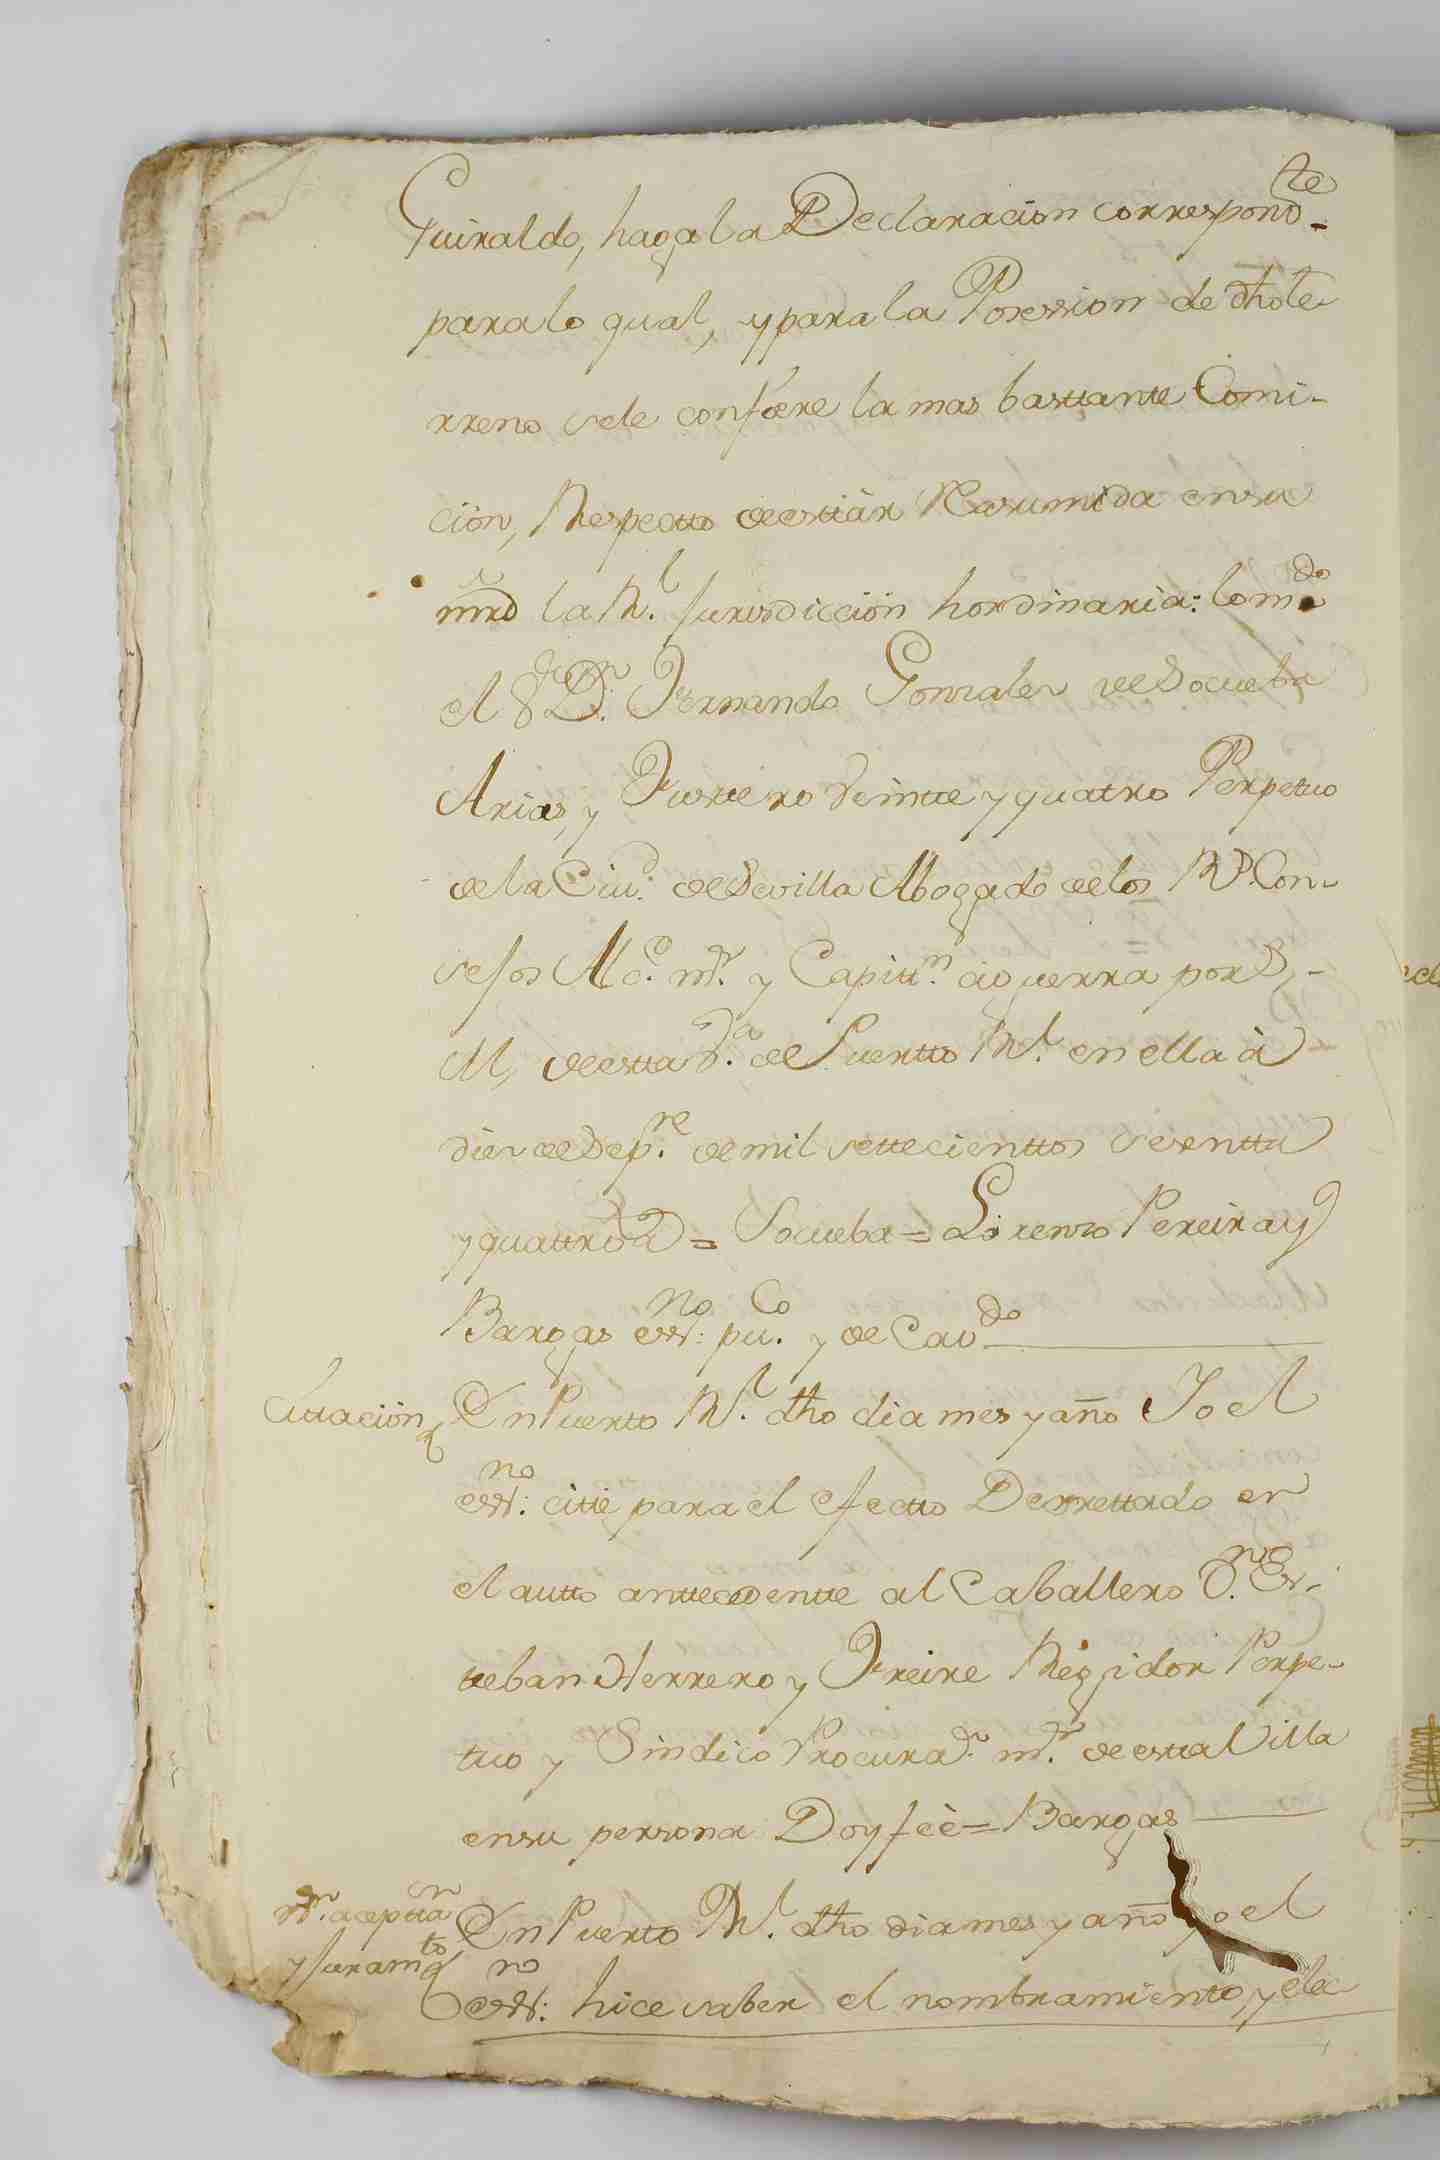 Guiraldo, haga la Declaracion correspond.te
para lo qual, y para la Posession de dho te
rreno se le confiere la mas basttante Comi-
ción, Respectto de esttàr Resumida en su
mrd la R.l Jurisdiccion hordinaria: lo m.do
el S.r D.n Fernando Gonzales de Socueba
Arias, y Fustero Veintte y quatro Perpetuo
de la Ciu.d de Sevilla Abogado de los R.s Con-
sejos Al.e m.r y Capitt.n à guerra por S,
M, de estta V.a de Puertto R.l en ella à
diez de Sep.re de mil settecienttos sesentta
y quattro a = Socueba = Lorenzo Pereira y
Bargas ess.no pu.co y de Cav.do
Cittación
En Puerto R.l dho dia mes y año Yo el
ess.no cittè para el efectto Decrettado en
el autto anttecedentte al Caballero D.n Es-
tteban Herrero y Freire Regidor Perpe-
tuo y Sindico Procura.r m.r de estta Villa
en su persona Doy feè = Bargas
n.on aceptta.n
y Juram.to
En Puerto R.l dho dia mes y año yo el
ess.no hice saber el nombramiento, y elec